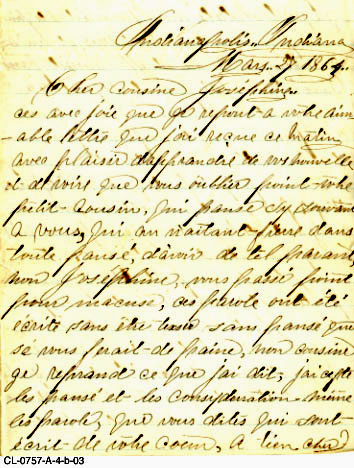 Indianapolis.. Indiana
Mars. 27 1864..
Cher cousine Josephine..
ces avec joie que je repont a votre aim-
able lettre que j'ai reçue ce matin
avec plaisir d'apprandre de vos nouvelle
et de voire que vous oublier point votre
petit-cousin, qui panse sy souvant
a vous, qui an n'aitant fiere dans
toute pansé, d'avoir de tel parant,
non Josephine, vous passé point
pour macuse, ces parole ont été
écrits sans être sans pansé que
se vous ferait de paine, mon cousine
ge reprand ce que j'ai dit; j'aicepte
les pansé et les consideration même
les parole, que vous dites qui sont
écrit de votre coeur, a bien cher
CL-0757-A-4-b-03